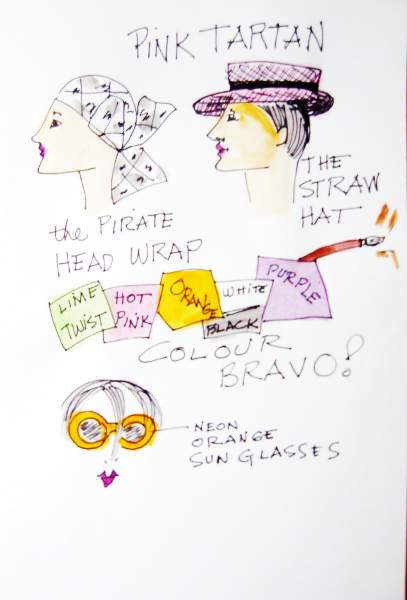 PINK TARTAN
THE
STRAW
HAT
the PIRATE
HEAD WRAP
LIME
TWIST
HOT
PINK
ORANGE
WHITE
BLACK
PURPLE
COLOUR
BRAVO!
NEON
ORANGE
SUN GLASSES